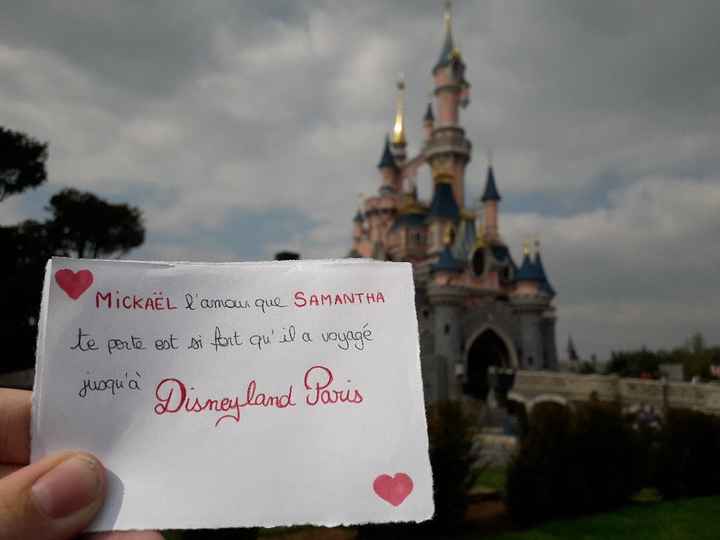 MICKAËL l'amour que SAMANTHA
te porte est si fort qu'il a voyagé
jusqu'à Disneyland Paris